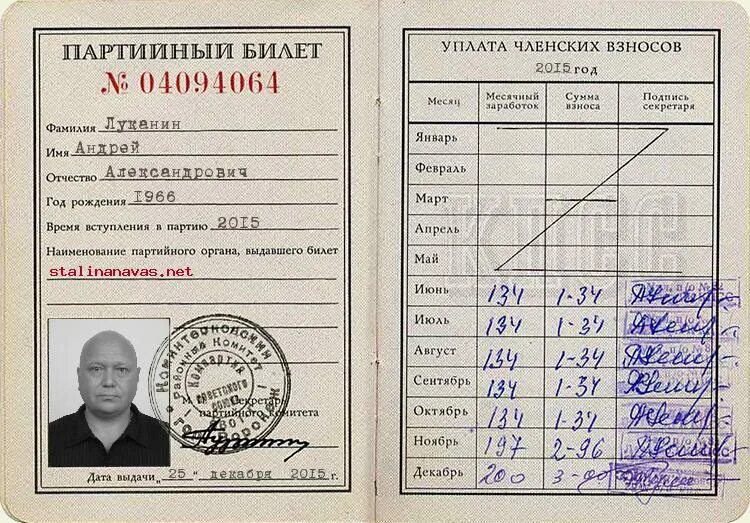 ПАРТИЙНЫЙ БИЛЕТ
№ 04094064
Фамилия Луканин
Имя Андрей
Отчество Александрович
Год рождения 1966
Время вступления в партию 2015
Наименование партийного органа, выдавшего билет
stalinanavas.net
М. П. Секретарь
партийного комитета
Дата выдачи „25" декабря 2015 г.
УПЛАТА ЧЛЕНСКИХ ВЗНОСОВ
2015 год
Месяц Месячный заработок Сумма взноса Подпись секретаря
Январь
Февраль
Март
Апрель
Май
КПСС
Июнь 134 1-34
Июль 134 1-34
Август 134 1-34
Сентябрь 134 1-34
Октябрь 134 1-34
Ноябрь 197 2-96
Декабрь 200